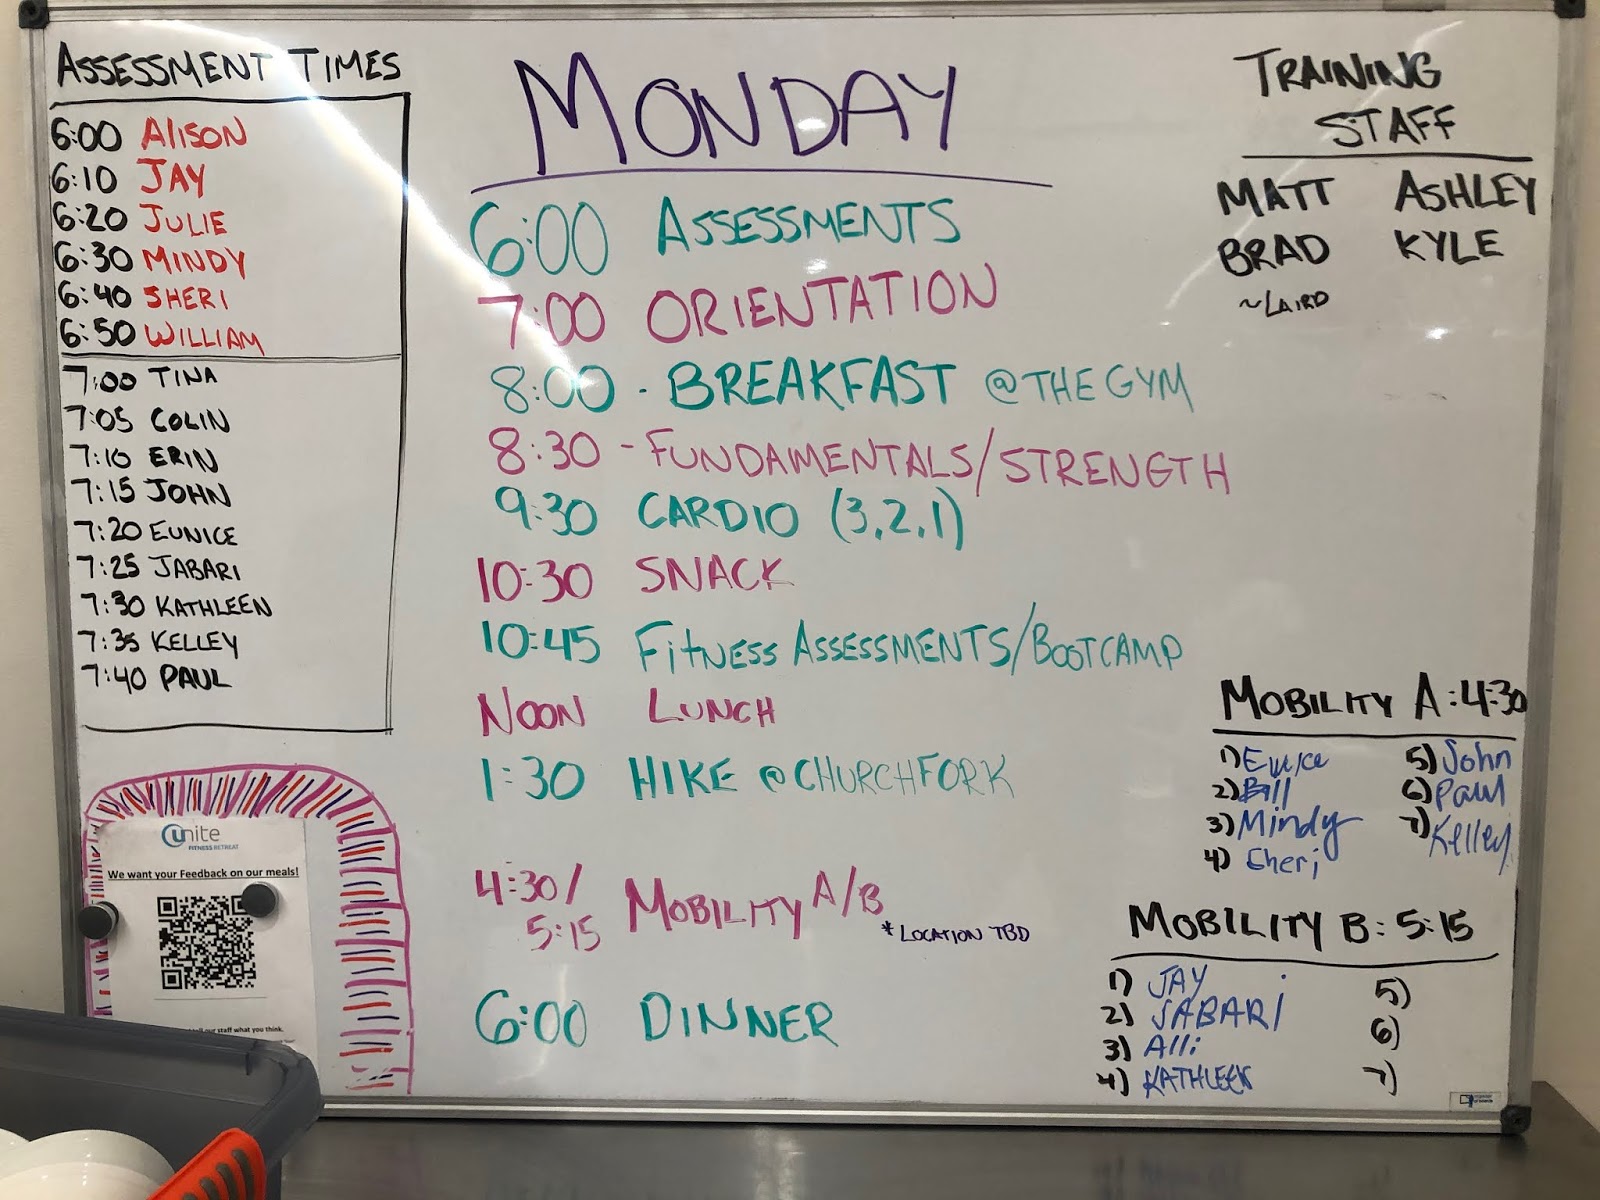 ASSESSMENT TIMES
6:00 ALISON
6:10 JAY
6:20 JULIE
6:30 MINDY
6:40 SHERI
6:50 WILLIAM
7:00 TINA
7:05 COLIN
7:10 ERIN
7:15 JOHN
7:20 EUNICE
7:25 JABARI
7:30 KATHLEEN
7:35 KELLEY
7:40 PAUL
Unite
FITNESS RETREAT
We want your Feedback on our meals!
our staff what you think.
MONDAY
6:00 ASSESSMENTS
7:00 ORIENTATION
8:00 - BREAKFAST @THE GYM
8:30 - FUNDAMENTALS/STRENGTH
9:30 CARDIO (3,2,1)
10:30 SNACK
10:45 FITNESS ASSESSMENTS/BOOTCAMP
NOON LUNCH
1:30 HIKE @CHURCHFORK
4:30/
5:15 MOBILITY A/B
* LOCATION TBD
6:00 DINNER
TRAINING
STAFF
MATT ASHLEY
BRAD KYLE
~LAIRD
MOBILITY A: 4:30
1) Eunice 5) John
2) Bill 6) Paul
3) Mindy 7) Kelley
4) Sheri
MOBILITY B: 5:15
1) JAY 5)
2) JABARI 6)
3) Alli 7)
4) KATHLEEN